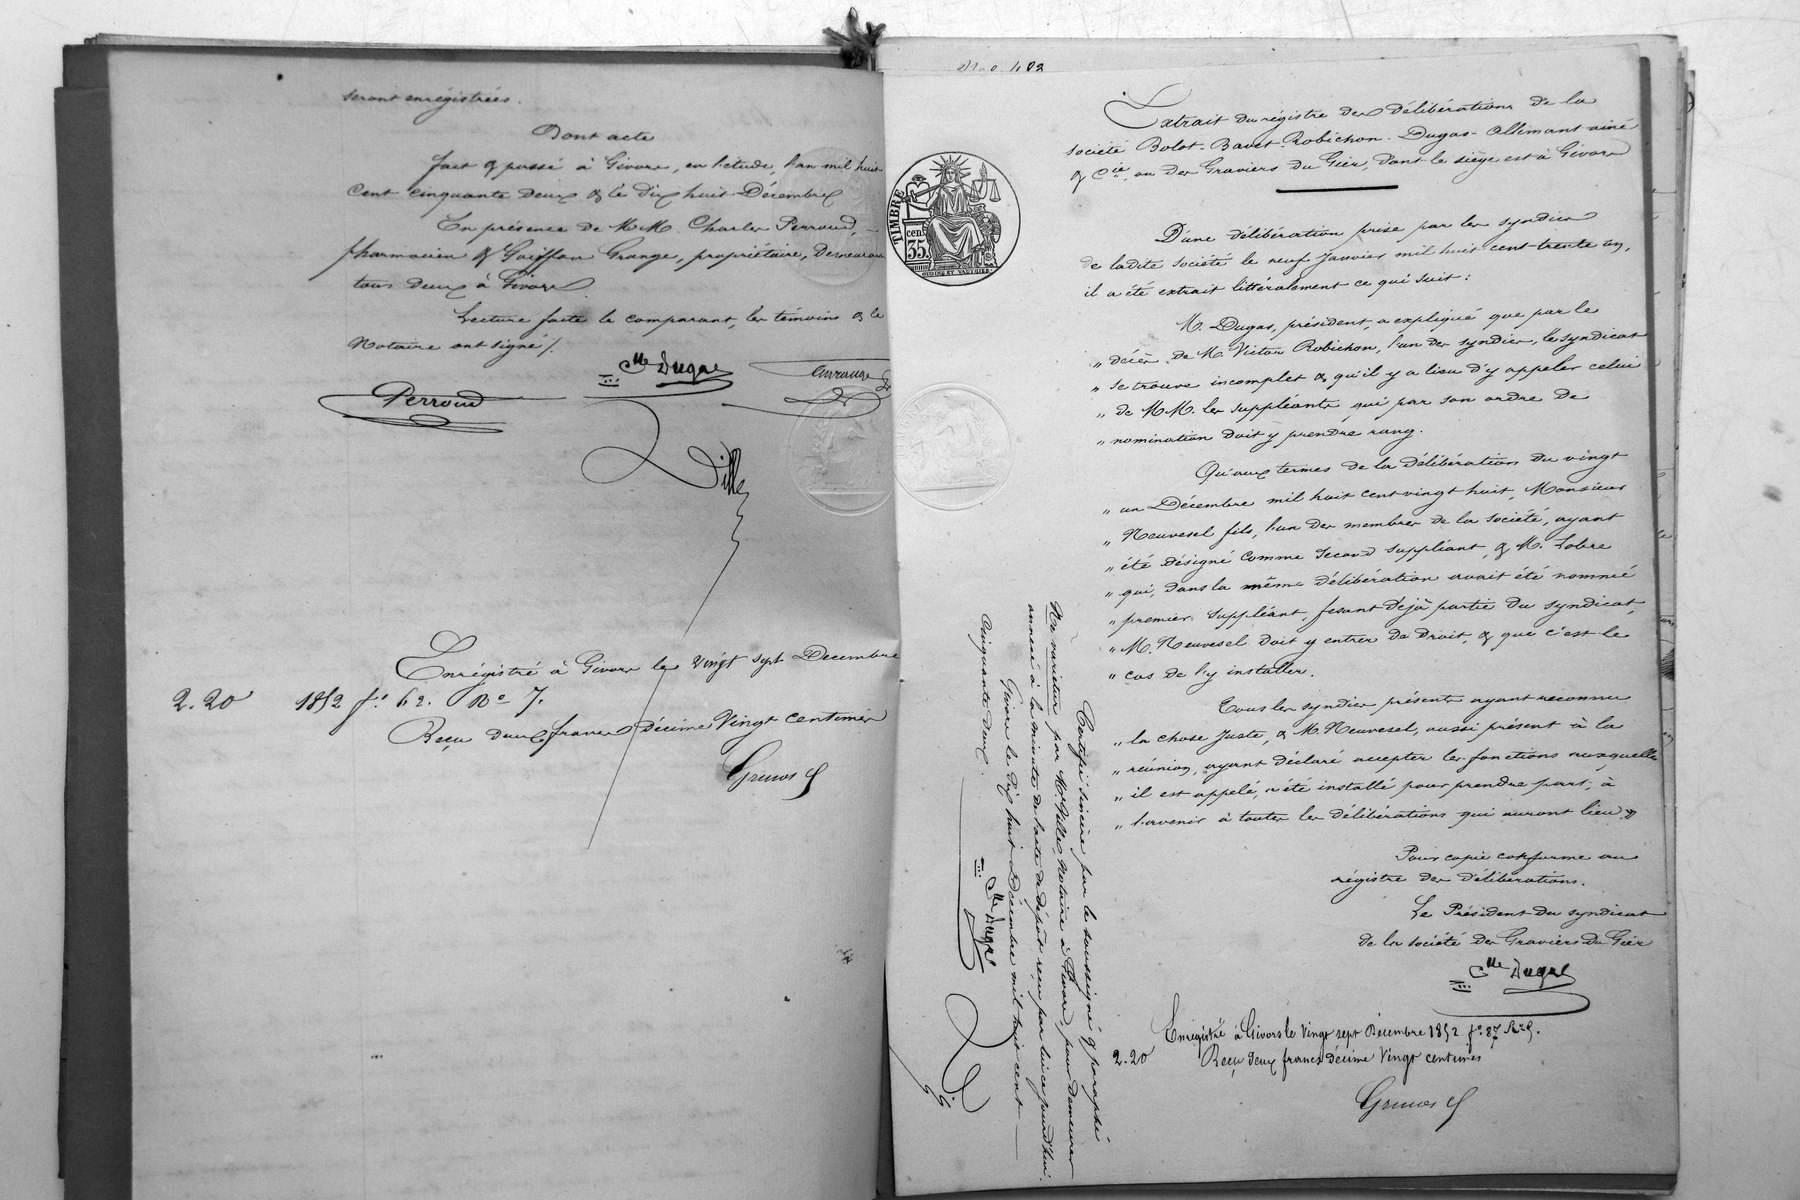 seront enrégistrées.
Dont acte
fait & passé à Givors, en l'étude, l'an mil huit
cent cinquante deux & le dix huit Décembre
En présence de M.M. Charles Perroud,
pharmacien & Goiffon Grange, propriétaire, demeurant
tous deux à Givors
Lecture faite le comparant, les témoins & le
Notaire ont signé /.
Perroud
Clle Dugas
Enrégistré à Givors le vingt sept Décembre
2.20 1852 fo. 62. Ro 7.
Reçu deux francs décime vingt centimes
TIMBRE
cen.
35.
Extrait du régistre des délibérations de la
société Bolot-Bavet-Robichon-Dugas-Allimant ainé
& Cie, ou des Graviers du Gier, dont le siège est à Givors
D'une délibération prise par les syndics
de ladite société le neuf Janvier mil huit cent trente un,
il a été extrait littéralement ce qui suit :
M. Dugas, président, a expliqué que par le
" décès de M. Victor Robichon, l'un des syndics, le syndicat
" se trouve incomplet & qu'il y a lieu d'y appeler celui
" de M.M. les suppléants, qui par son ordre de
" nomination doit y prendre rang.
Qu'aux termes de la délibération du vingt
" un Décembre mil huit cent vingt huit, Monsieur
" Neuvesel fils, l'un des membres de la société, ayant
" été désigné comme second suppléant, & M. Lobre
" qui, dans la même délibération avait été nommé
" premier suppléant, fesant déjà partie du syndicat,
" M. Neuvesel doit y entrer de droit, & que c'est le
" cas de l'y installer.
Tous les syndics présents ayant reconnu
" la chose juste, & M. Neuvesel, aussi présent à la
" réunion, ayant déclaré accepter les fonctions auxquelles
" il est appelé, a été installé pour prendre part, à
" l'avenir à toutes les délibérations qui auront lieu »
Pour copie conforme au
régistre des délibérations.
Le Président du syndicat
de la société des Graviers du Gier
Clle Dugas
Enregistré à Givors le vingt sept Décembre 1852 fo. 87 Ro 5.
2.20 Reçu deux francs décime vingt centimes
Certifié sincère par le soussigné & paraphé
Ne varietur par Me Dille, Notaire à Givors, pour demeurer
annexé à la minute de l'acte de dépôt reçu par lui cejourd'hui.
Givors le dix huit Décembre mil huit cent
cinquante deux.
Clle Dugas